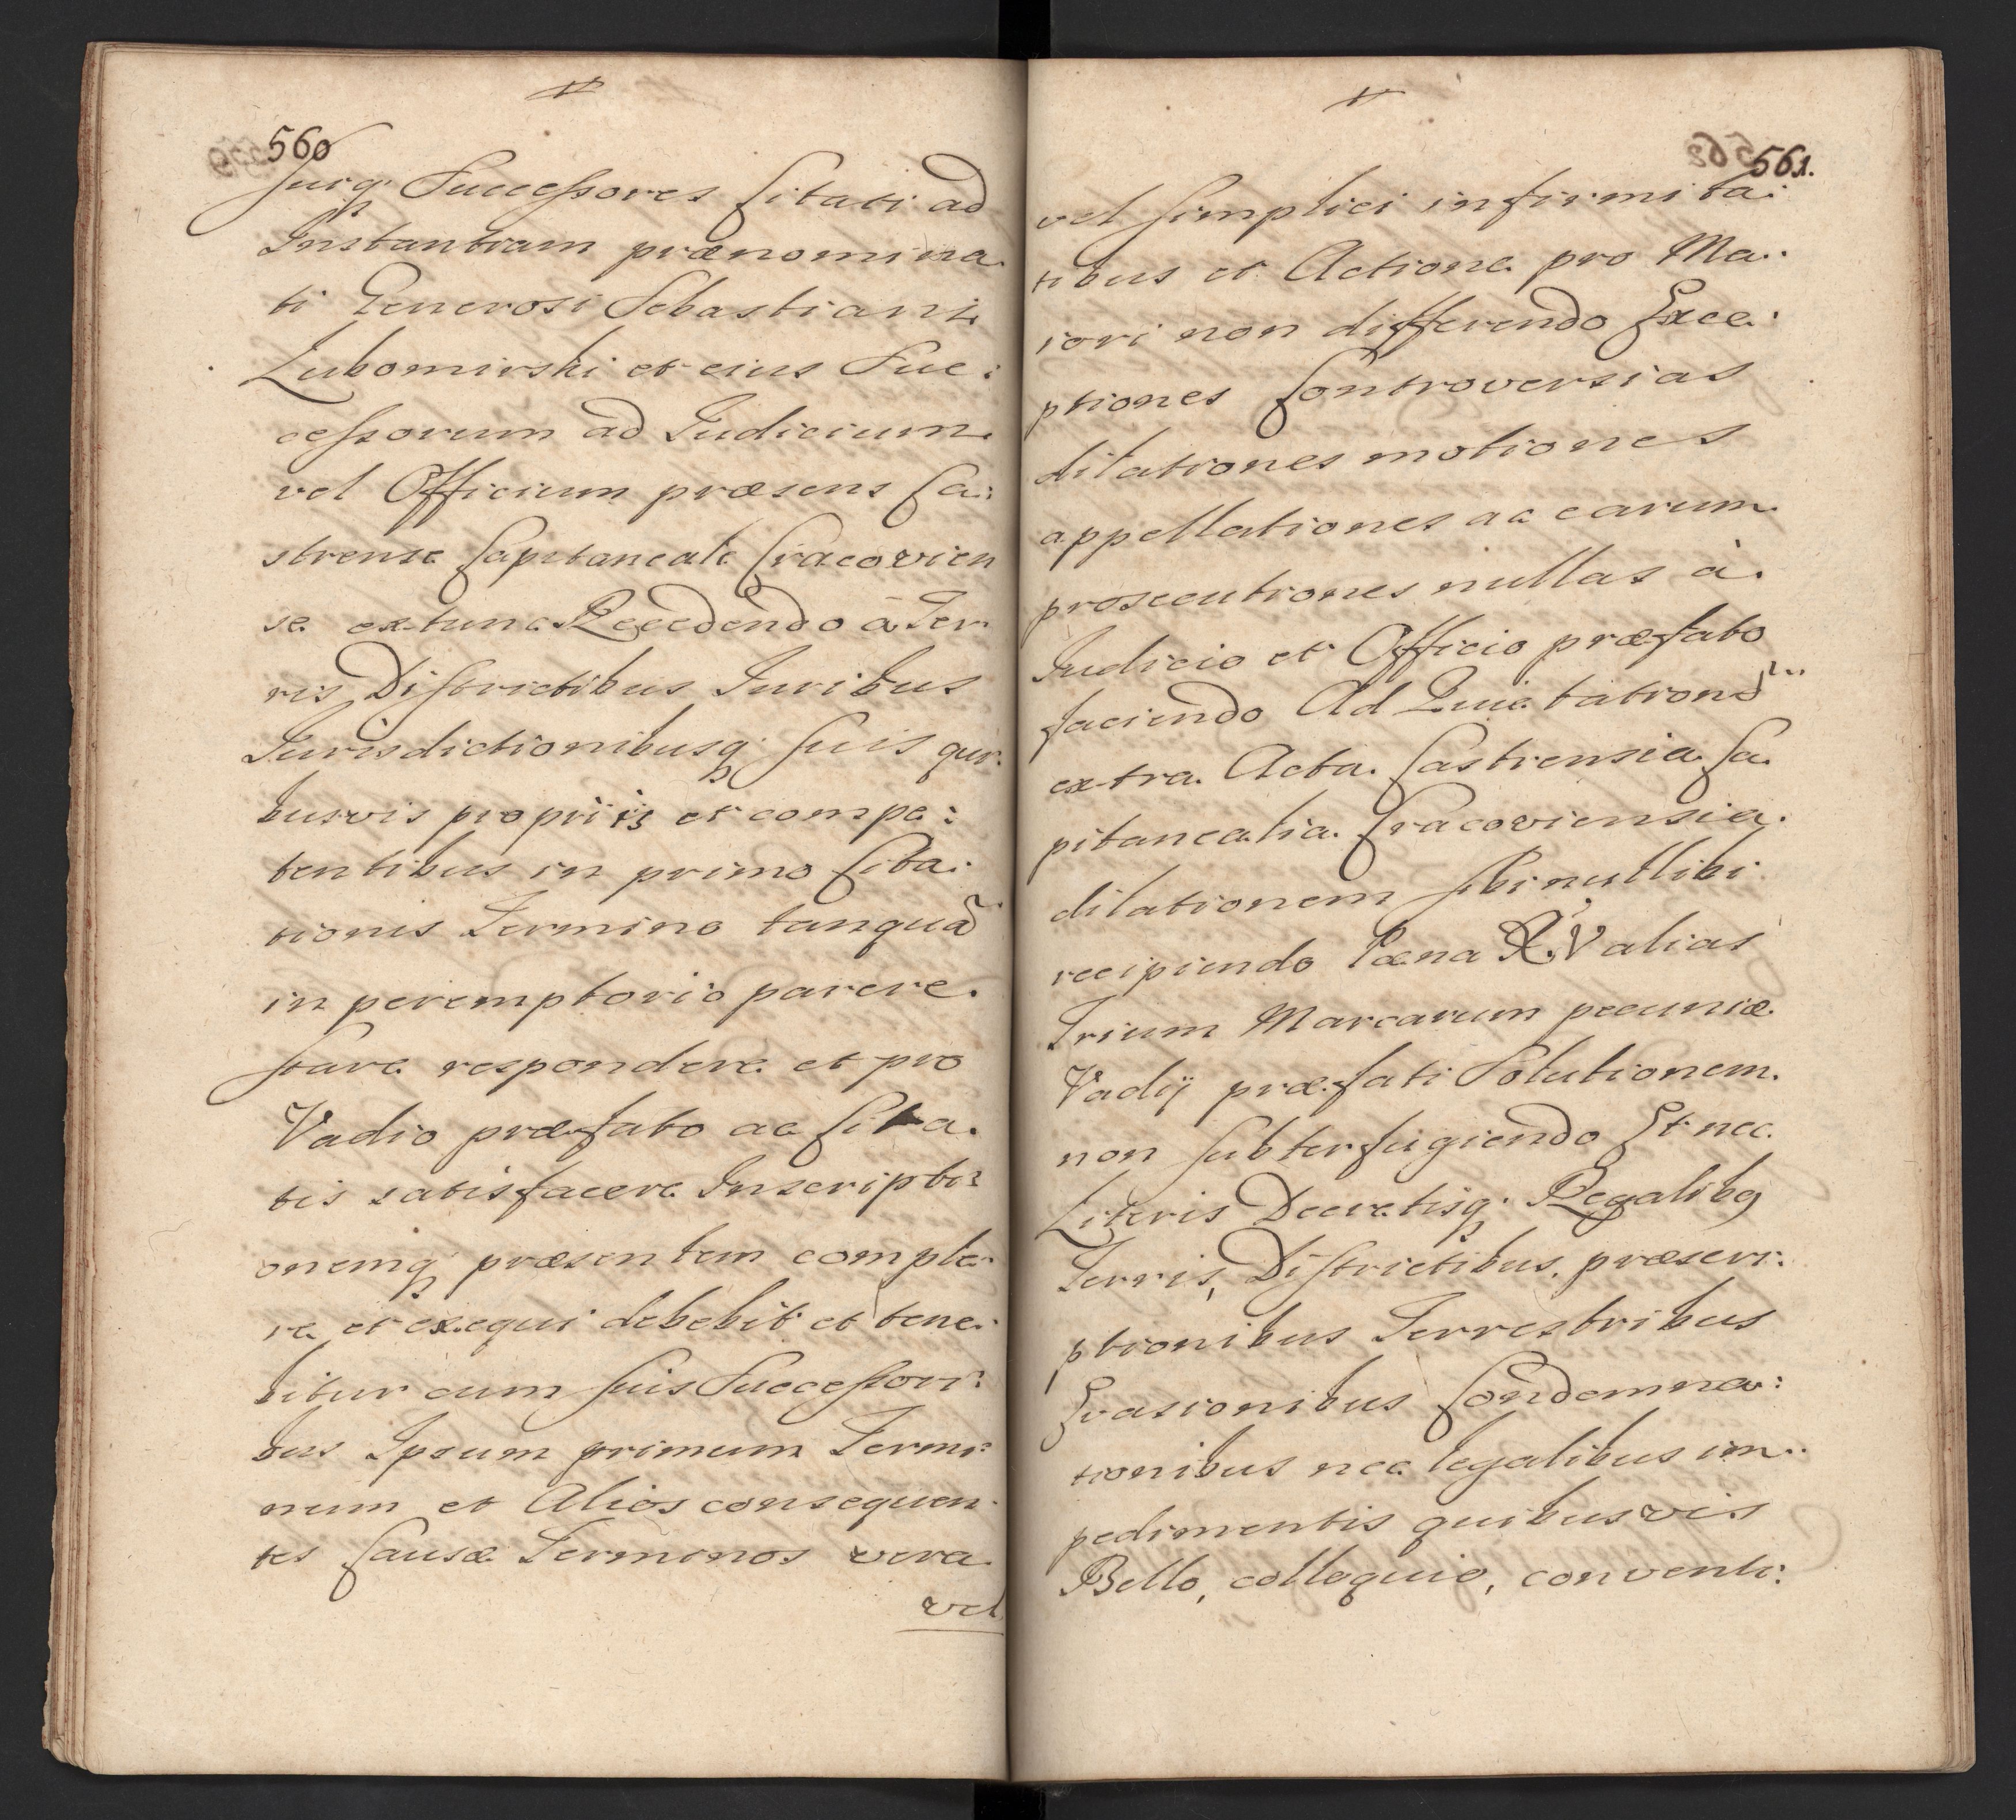 560
Suiq. Successores Citati ad
Instantiam prænomina.
ti Generosi Sebastiani
Lubomirski et eius Suc:
cessorum ad Iudicium
vel Officium præsens Ca:
strense Capitaneale Cracovien
se extunc Recedendo à Ter
ris Districtibus Iuribus
Iurisdictionibusq. suis qui:
busvis proprijs et compe:
tentibus in primo Cita:
tionis Termino tanquã
in peremptorio parere.
stare respondere et pro
Vadio præfato ac Cita.
tis satisfacere Inscripti:
onemq præsentem comple:
re et exequi debebit et tene:
bitur cum suis Successori:
bus Ipsum primum Termi:
num et Alios consequen:
tes Causæ Terminos vera
vel
561.
vel simplici infirmita:
tibus et Actione pro Ma:
iori non differendo Exce:
ptiones Controversias
dilationes motiones
appellationes ac earum
prosecutiones nullas à
Iudicio et Officio præfato
faciendo Ad Quietationẽ
extra Acta Castrensia Ca
pitanealia Cracoviensia
dilationem sibi nullibi
recipiendo Pæna X. V alias
Trium Marcarum pecuniæ
Vadij præfati Solutionem
non subterfugiendo Et nec
Literis Decretisq. Regalibq
Terris, Districtibus, præscri:
ptionibus Terrestribus
Evasionibus Condemna:
tionibus nec legalibus im:
pedimentis quibusvis
Bello, colloquio, conventi: